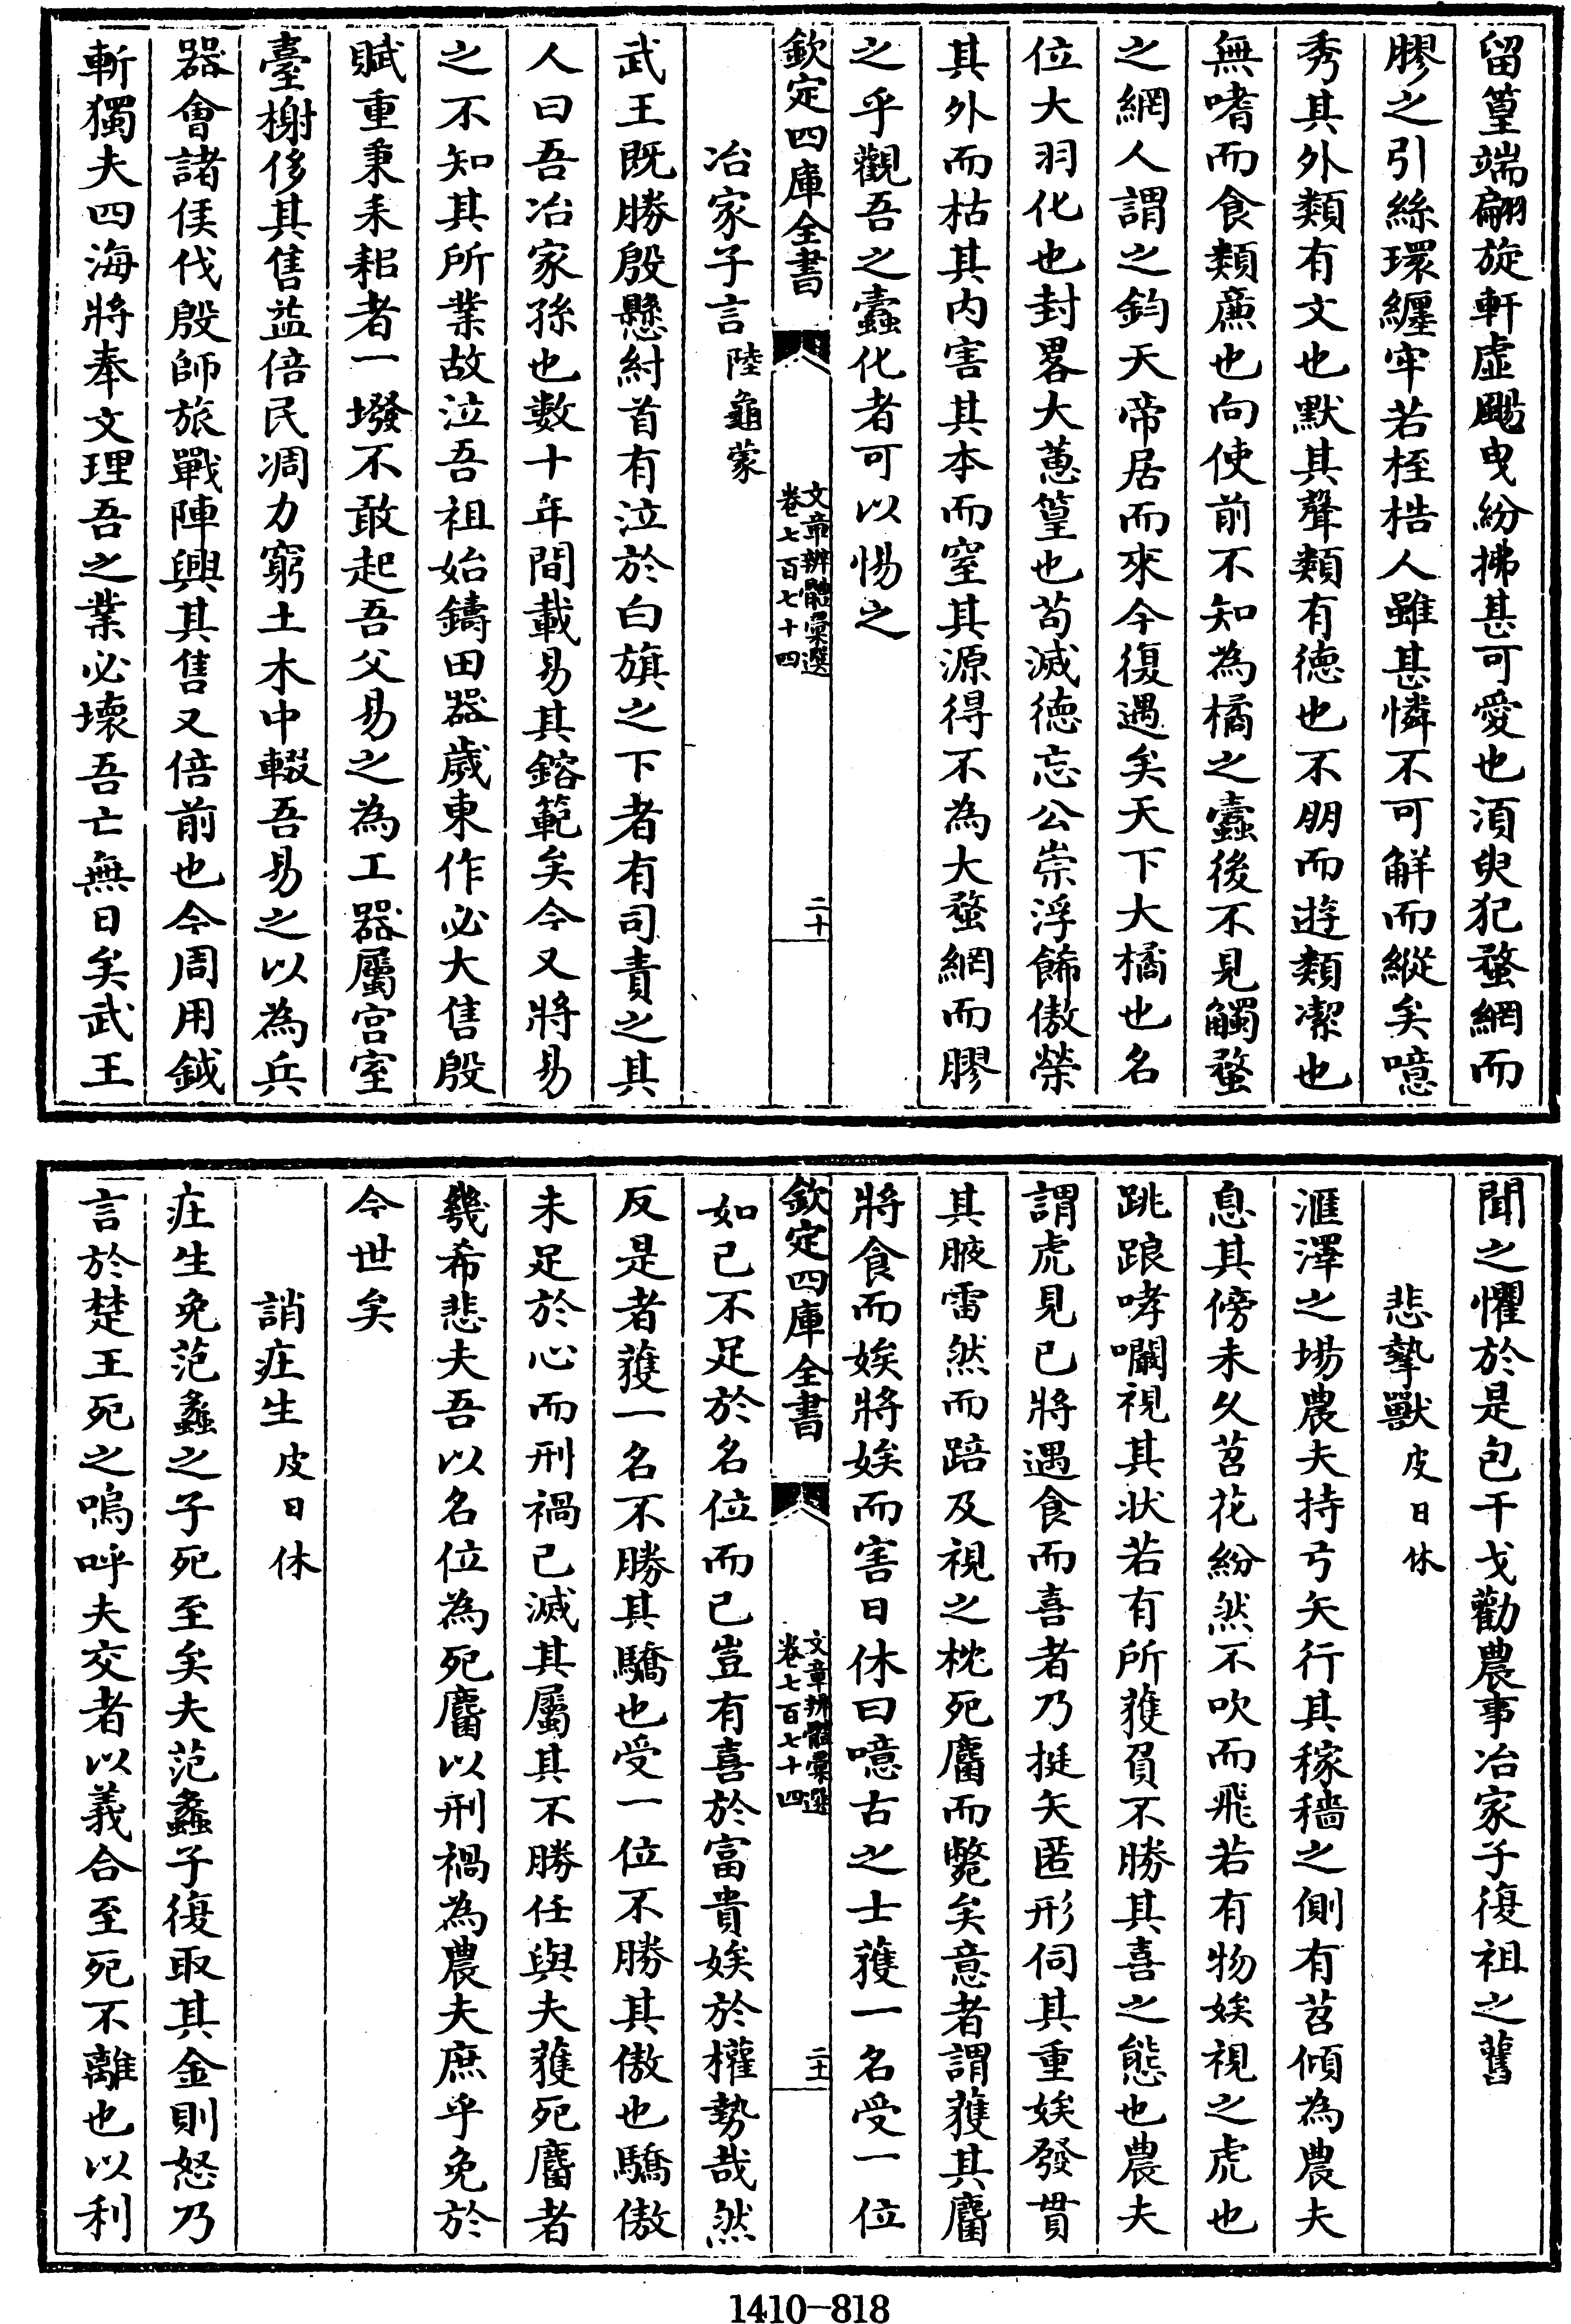 留篁端翩旋軒虛颺曳紛拂甚可愛也須臾犯蝥網而
膠之引絲環纒牢若桎梏人雖甚憐不可解而縱矣噫
秀其外類有文也默其聲類有徳也不朋而遊類潔也
無嗜而食類亷也向使前不知為橘之蠧後不見觸蝥
之網人謂之鈞天帝居而來今復遇矣天下大橘也名
位大羽化也封畧大蕙篁也苟滅徳忘公崇浮飾傲榮
其外而枯其内害其本而窒其源得不為大蝥網而膠
之乎觀吾之蠧化者可以惕之
欽定四庫全書
文章辨體彙選
卷七百七十四
二十
冶家子言 陸龜蒙
武王既勝殷懸紂首有泣於白旗之下者有司責之其
人曰吾冶家孫也數十年間載易其鎔範矣今又將易
之不知其所業故泣吾祖始鑄田器歲東作必大售殷
賦重秉耒耜者一墢不敢起吾父易之為工器屬宫室
臺榭侈其售益倍民凋力窮土木中輟吾易之以為兵
器會諸侯伐殷師旅戰陣興其售又倍前也今周用鉞
斬獨夫四海將奉文理吾之業必壞吾亡無日矣武王
聞之懼於是包干戈勸農事冶家子復祖之舊
悲摯獸 皮日休
滙澤之場農夫持弓矢行其稼穡之側有苕傾為農夫
息其傍未久苕花紛然不吹而飛若有物娭視之虎也
跳踉哮㘚視其状若有所獲負不勝其喜之態也農夫
謂虎見已將遇食而喜者乃挺矢匿形伺其重娭發貫
其腋雷然而踣及視之枕死麕而斃矣意者謂獲其麕
將食而娭將娭而害日休曰噫古之士獲一名受一位
欽定四庫全書
文章辨體彙選
卷七百七十四
二十一
如已不足於名位而已豈有喜於富貴娭於權勢哉然
反是者獲一名不勝其驕也受一位不勝其傲也驕傲
未足於心而刑禍已滅其屬其不勝任與夫獲死麕者
幾希悲夫吾以名位為死麕以刑禍為農夫庶乎免於
今世矣
誚疰生 皮日休
疰生免范蠡之子死至矣夫范蠡子復取其金則怒乃
言於楚王死之嗚呼夫交者以義合至死不離也以利
1410-818